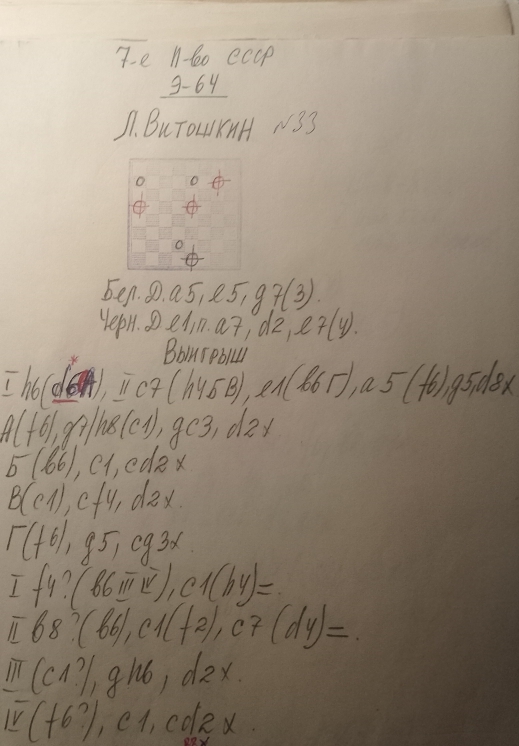 7-е п-во СССР
Э-64
Л. Витошкин №33
Бел. Д. a5, e5, g7(3).
Черн. Д e1, п. a7, d2, e7(4).
Выигрыш
I h6(d6*A), II c7(h4БВ), e1(b6Г), a5(f6), g5, d8x
А(f6), g7/h8(c1), gc3, d2x
Б(b6), c1, cd2x
В(c1), cf4, d2x.
Г(f6), g5, cg3x.
I f4?(b6 III IV), c1(h4)=.
II b8?(b6), c1(f2), c7(d4)=.
III(c1?), gh6, d2x.
IV(f6?), c1, cd2x.